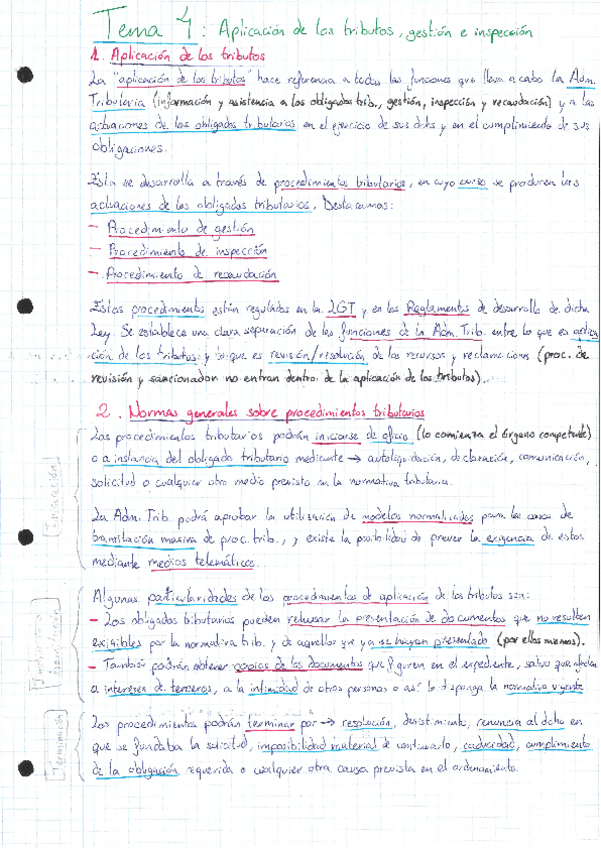 Tema 4: Aplicación de los tributos, gestión e inspección
1. Aplicación de los tributos
La "aplicación de los tributos" hace referencia a todas las funciones que lleva a cabo la Adm.
Tributaria (información y asistencia a los obligados trib., gestión, inspección y recaudación) y a las
actuaciones de los obligados tributarios en el ejercicio de sus dchos y en el cumplimiento de sus
obligaciones.
Esta se desarrolla a través de procedimientos tributarios, en cuyo se producen
actuaciones de los obligados tributarios. Destacamos:
- Procedimiento de gestión
- Procedimiento de inspección
- Procedimiento de recaudación
Estos procedimientos están regulados en la LGT y en los Reglamentos de desarrollo de dicha
Ley. Se establece una clara separación de las funciones de la Adm. Trib. entre lo que es aplica
ción de los tributos y lo que es revisión/resolución de los recursos y reclamaciones (proc. de
revisión y sancionador no entran dentro de la aplicación de los tributos).
2. Normas generales sobre procedimientos tributarios
Los procedimientos tributarios podrán iniciarse de oficio (lo comienza el órgano competente)
o a instancia del obligado tributario mediante → autoliquidación, declaración, comunicación,
solicitud o cualquier otro medio previsto en la normativa tributaria.
Iniciación
La Adm. Trib. podrá aprobar la utilización de modelos normalizados para los casos de
tramitación masiva de proc. trib., y existe la posibilidad de prever la exigencia de estos
mediante medios telemáticos.
Algunas particularidades de los procedimientos de aplicación de los tributos son:
- Los obligados tributarios pueden rehusar la presentación de documentos que no resulten
exigibles por la normativa trib. y de aquellos que ya se hayan presentado (por ellos mismos).
- También podrán obtener copias de los documentos que figuren en el expediente, salvo que afecten
a intereses de terceros, a la intimidad de otras personas o así lo disponga la normativa vigente
Los procedimientos podrán terminar por → resolución, desistimiento, renuncia al dcho en
que se fundaba la solicitud, imposibilidad material de continuarlo, caducidad, cumplimiento
de la obligación requerida o cualquier otra causa prevista en el ordenamiento.
Terminación